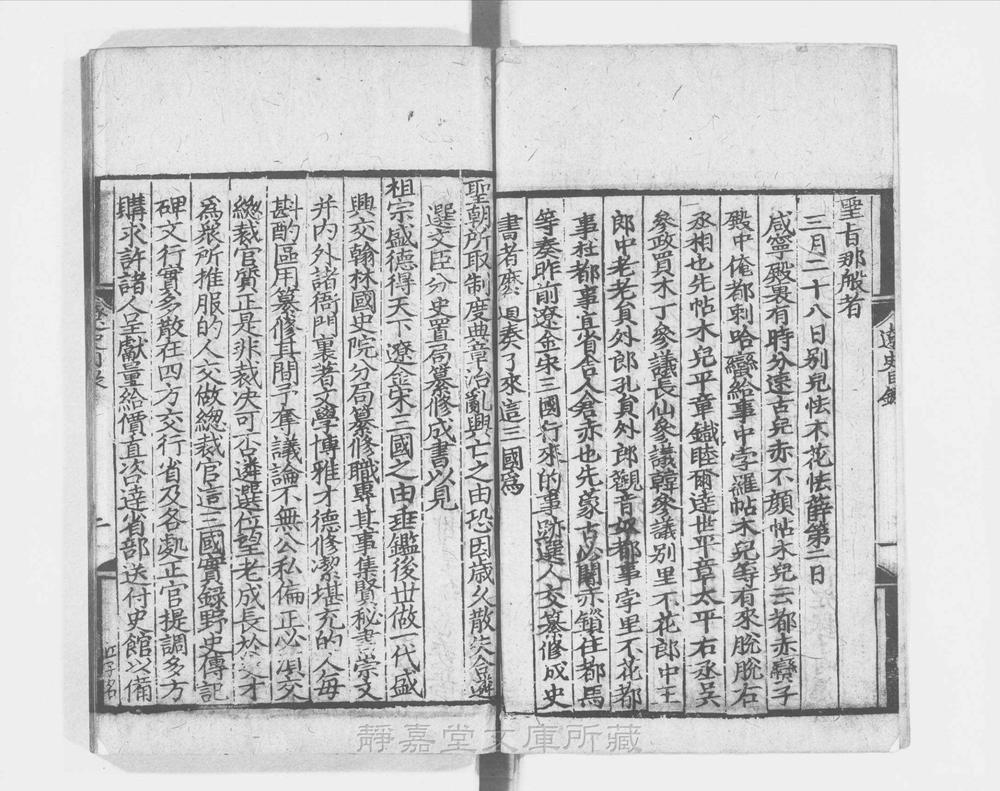 聖旨那般者
三月二十八日別兒怯不花怯薛第二日
咸寧殿裏有時分速古兒赤不顏帖木兒云都赤蠻子
殿中俺都剌哈蠻給事中孛羅帖木兒等有來脫脫右
丞相也先帖木兒平章鐵睦爾達世平章太平右丞吳
參政買木丁參議長仙參議韓參議別里不花郎中王
郎中老老員外郎孔員外郎觀音奴都事孛里不花都
事杜都事直省舍人倉赤也先蒙古必闍赤鎖住都馬
等奏昨前遼金宋三國行來的事跡選人交纂修成史
書者麽道奏了來這三國爲
聖朝所取制度典章治亂興亡之由恐因歲久散失合遴
選文臣分史置局纂修成書以見
祖宗盛德得天下遼金宋三國之由垂鑑後世做一代盛
興交翰林國史院分局纂修職專其事集賢秘書崇文
并內外諸衙門裏著文學博雅才德修潔堪充的人每
斟酌區用纂修其間予奪議論不無公私偏正必須交
緫裁官質正是非裁决可否遴選位望老成長於史才
爲衆所推服的人交做緫裁官這三國實録野史傳記
碑文行實多散在四方交行省及各處正官提調多方
購求許諸人呈獻量給價直咨達省部送付史館以備
遼史目録
靜嘉堂文庫所藏